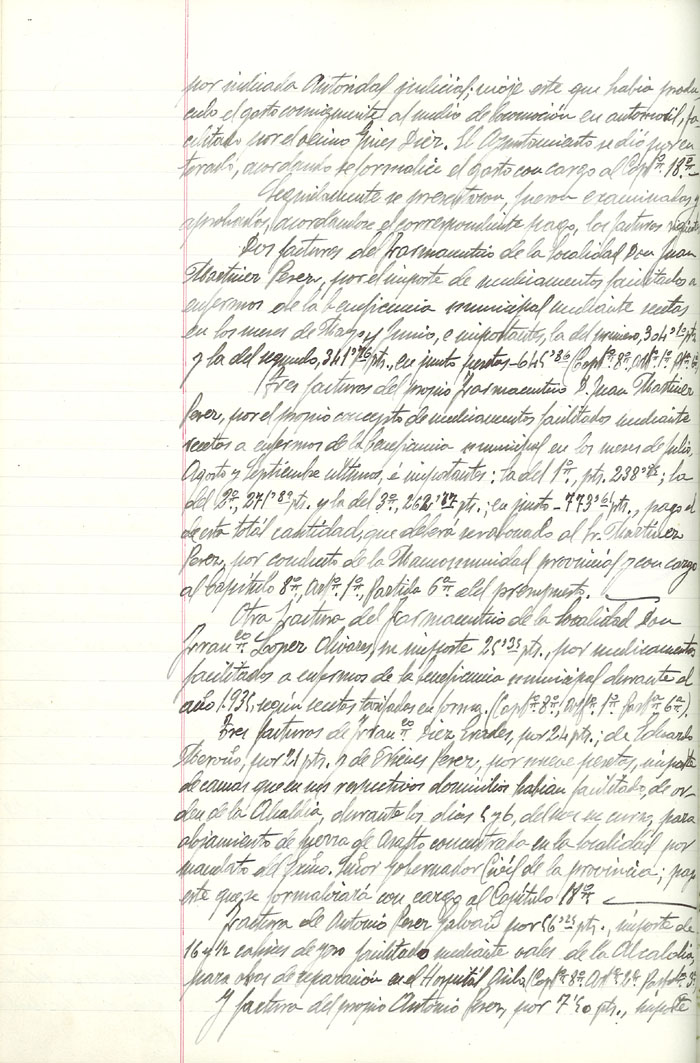 por indicada Autoridad judicial; viaje este que había produ
cido el gasto consiguiente al medio de locomoción en automóvil, fa
cilitado por el vecino Ginés Diez. El Ayuntamiento se dió por en
terado, acordando se formalice el gasto con cargo al Capº. 18º.
Seguidamente se presentaron, fueron examinadas y
aprobadas, acordándose el correspondiente pago, las facturas siguientes
Dos facturas del Farmacéutico de la localidad Don Juan
Martinez Perez, por el importe de medicamentos facilitados a
enfermos de la beneficencia municipal mediante recetas
en los meses de Mayo y Junio, e importantes, la del primero, 304'10 pts.
y la del segundo, 341'76 pts., en junto pesetas 645'86 (Capº. 8º, Artº. 1º, Pª. 6ª
Tres facturas del propio Farmacéutico D. Juan Martinez
Perez, por el propio concepto de medicamentos facilitados mediante
recetas a enfermos de la beneficencia municipal en los meses de Julio,
Agosto y Septiembre últimos, é importantes: la del 1º, pts. 238'; la
del 2º, 271'89 pts. y la del 3º, 262'87 pts.; en junto 773'61 pts., pago el
de esta total cantidad, que deberá ser abonado al Sr. Martinez
Perez, por conducto de la Mancomunidad provincial y con cargo
al Capítulo 8º, Artº. 1º, Partida 6ª del presupuesto.
Otra factura del Farmacéutico de la localidad Don
Franco Lopez Olivares, su importe 25'35 pts., por medicamentos
facilitados a enfermos de la beneficencia municipal durante el
año 1.935, según recetas tasadas en forma. (Capº. 8º, Artº. 1º Parª 6ª).
Tres facturas de Franco Diez, por 24 pts.; de Eduardo
por 21 pts. y de Nieves Perez, por nueve pesetas, importe
de camas que en sus respectivos domicilios habían facilitado, de or
den de la Alcaldía, durante los días 5 y 6, del mes en curso, para
alojamiento de fuerza de Asalto concentrada en la localidad por
mandato del Excmo. Señor Gobernador Civil de la provincia; pago
este que se formalizará con cargo al Capítulo 18º
Factura de Antonio Perez Galvañ por 56'25 pts., importe de
16 y ½ cahíces de yeso facilitado mediante vales de la Alcaldía,
para obras de reparación en el Hospital (Capº. 8º. Artº. Parª.
Y factura del propio Antonio Perez, por 7'50 pts., importe